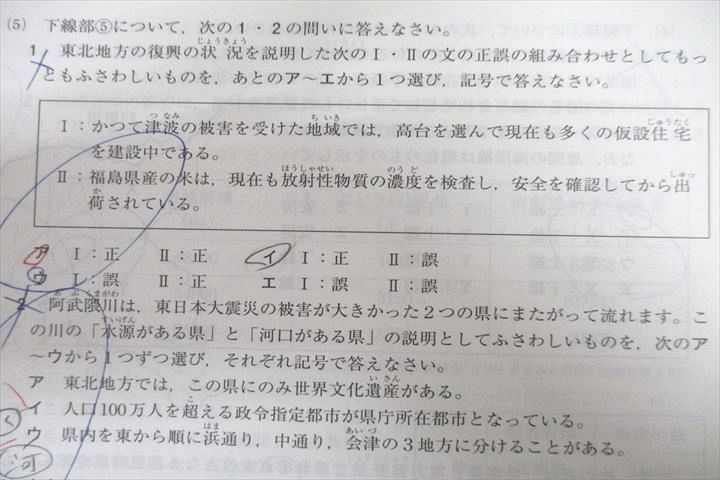 (5) 下線部⑤について，次の1・2の問いに答えなさい。
1 東北地方の復興の状況を説明した次のⅠ・Ⅱの文の正誤の組み合わせとしてもっ
ともふさわしいものを，あとのア～エから1つ選び，記号で答えなさい。
Ⅰ：かつて津波の被害を受けた地域では，高台を選んで現在も多くの仮設住宅
を建設中である。
Ⅱ：福島県産の米は，現在も放射性物質の濃度を検査し，安全を確認してから出
荷されている。
ア Ⅰ：正 Ⅱ：正 イ Ⅰ：正 Ⅱ：誤
ウ Ⅰ：誤 Ⅱ：正 エ Ⅰ：誤 Ⅱ：誤
2 阿武隈川は，東日本大震災の被害が大きかった2つの県にまたがって流れます。こ
の川の「水源がある県」と「河口がある県」の説明としてふさわしいものを，次のア
～ウから1つずつ選び，それぞれ記号で答えなさい。
ア 東北地方では，この県にのみ世界文化遺産がある。
イ 人口100万人を超える政令指定都市が県庁所在都市となっている。
ウ 県内を東から順に浜通り，中通り，会津の3地方に分けることがある。
河